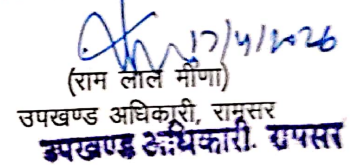 17/4/2026
(राम लाल मीणा)
उपखण्ड अधिकारी, रामसर
उपखण्ड अधिकारी. रामसर